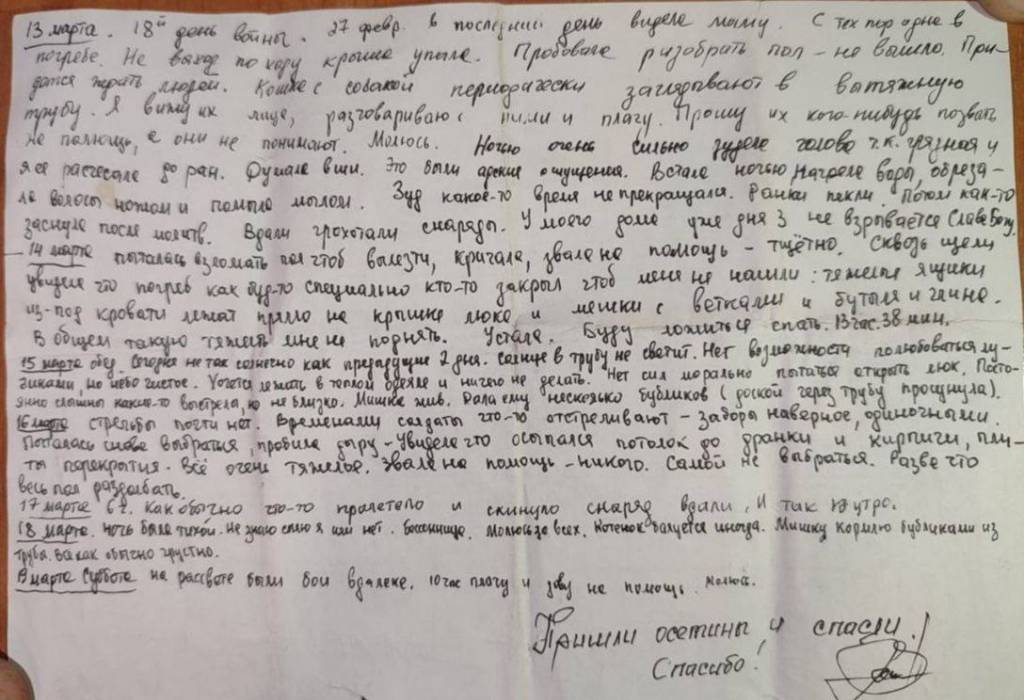 13 марта. 18й день войны. 27 февр. в последний день видела маму. С тех пор одна в
погребе. Не выход по ходу крыша упала. Пробовала разобрать пол – не вышло. При-
дётся ждать людей. Кошка с собакой периодически заглядывают в вытяжную
трубу. Я вижу их лица, разговариваю с ними и плачу. Прошу их кого-нибудь позвать
на помощь, а они не понимают. Молюсь. Ночью очень сильно зудела голова т.к. грязная и
я её расчесала до ран. Думала вши. Это были адские ощущения. Встала ночью нагрела воды, обреза-
ла волосы ножом и помыла мылом. Зуд какое-то время не прекращался. Ранки пекли. Потом как-то
заснула после молитв. Вдали грохотали снаряды. У моего дома уже дня 3 не взрывается Слава Богу.
14 марта пыталась взломать пол чтоб вылезти, кричала, звала на помощь – тщётно. Сквозь щели
увидела что погреб как буд-то специально кто-то закрыл чтоб меня не нашли: тяжелые ящики
из-под кровати лежат прямо на крышке люка и мешки с ветками и бутыля и глина.
В общем такую тяжесть мне не поднять. Устала. Буду ложиться спать. 13 час. 38 мин.
15 марта обед. Сегодня не так солнечно как предыдущие 2 дня. Солнце в трубу не светит. Нет возможности полюбоваться лу-
чиками, но небо чистое. Хочется лежать в теплом одеяле и ничего не делать. Нет сил морально пытаться открыть люк. Посто-
янно слышны какие-то выстрелы, но не близко. Мишка жив. Дала ему несколько бубликов (доской через трубу просунула).
16 марта стрельбы почти нет. Временами солдаты что-то отстреливают – заборы наверное, одиночными.
Попыталась снова выбраться, пробила дыру – увидела что осыпался потолок до дранки и кирпичи, пли-
ты перекрытия. Всё очень тяжелое. Звала на помощь – никого. Самой не выбраться. Разве что
весь пол раздолбать.
17 марта 6ч. Как обычно что-то пролетело и скинуло снаряд вдали, и так утро.
18 марта. Ночь была тихой. Не знаю сплю я или нет. Бессонница. Молюсь за всех. Котенок балуется иногда. Мишку кормлю бубликами из
трубы. как обычно грустно.
19 марта Суббота на рассвете были бои вдалеке. 10 час плачу и зову на помощь. Молюсь.
Пришли осетины и спасли!
Спасибо!